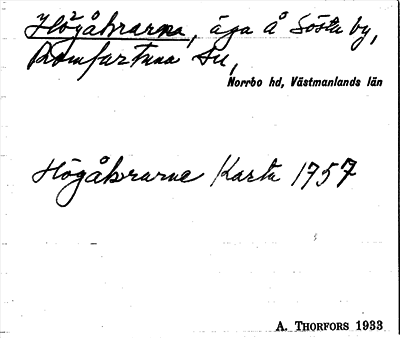 Högåkrarna, äga å Sösta by,
Romfartuna Sn,
Norrbo hd, Västmanlands län
Högåkrarne Karta 1757
A. THORFORS 1933